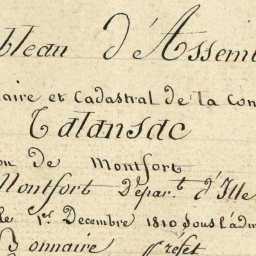 bleau d'Assemb
aire et Cadastral de la Com
Talansac
on de Montfort
Montfort Dépar.t d'Ille
le 1.er Decembre 1810 sous l'adm
Bonnaire Préfet